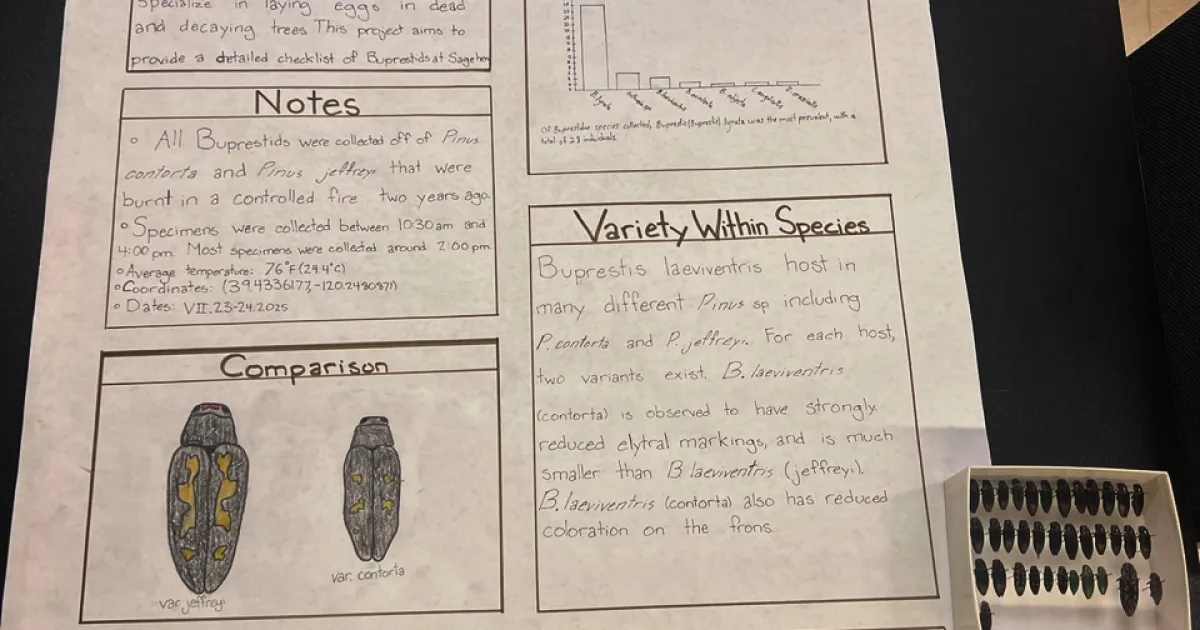 Specialize in laying eggs in dead
and decaying trees This project aims to
provide a detailed checklist of Buprestids at Sagehen
Notes
All Buprestids were collected off of Pinus
contorta and Pinus jeffreyi that were
burnt in a controlled fire two years ago.
Specimens were collected between 10:30am and
4:00 pm. Most specimens were collected around 2:00 pm
Average temperature: 76°F (24.4°C)
Coordinates: (39.4336177, -120.2480871)
Dates: VII.23-24.2025
Comparison
var. jeffreyi
var. contorta
B. lyrata
Of Buprestidae species collected, Buprestis (Buprestis) lyrata was the most prevalent, with a
total of 28 individuals
Variety Within Species
Buprestis laeviventris host in
many different Pinus sp including
P. contorta and P. jeffreyi. For each host,
two variants exist. B. laeviventris
(contorta) is observed to have strongly
reduced elytral markings, and is much
smaller than B. laeviventris (jeffreyi).
B. laeviventris (contorta) also has reduced
coloration on the frons.